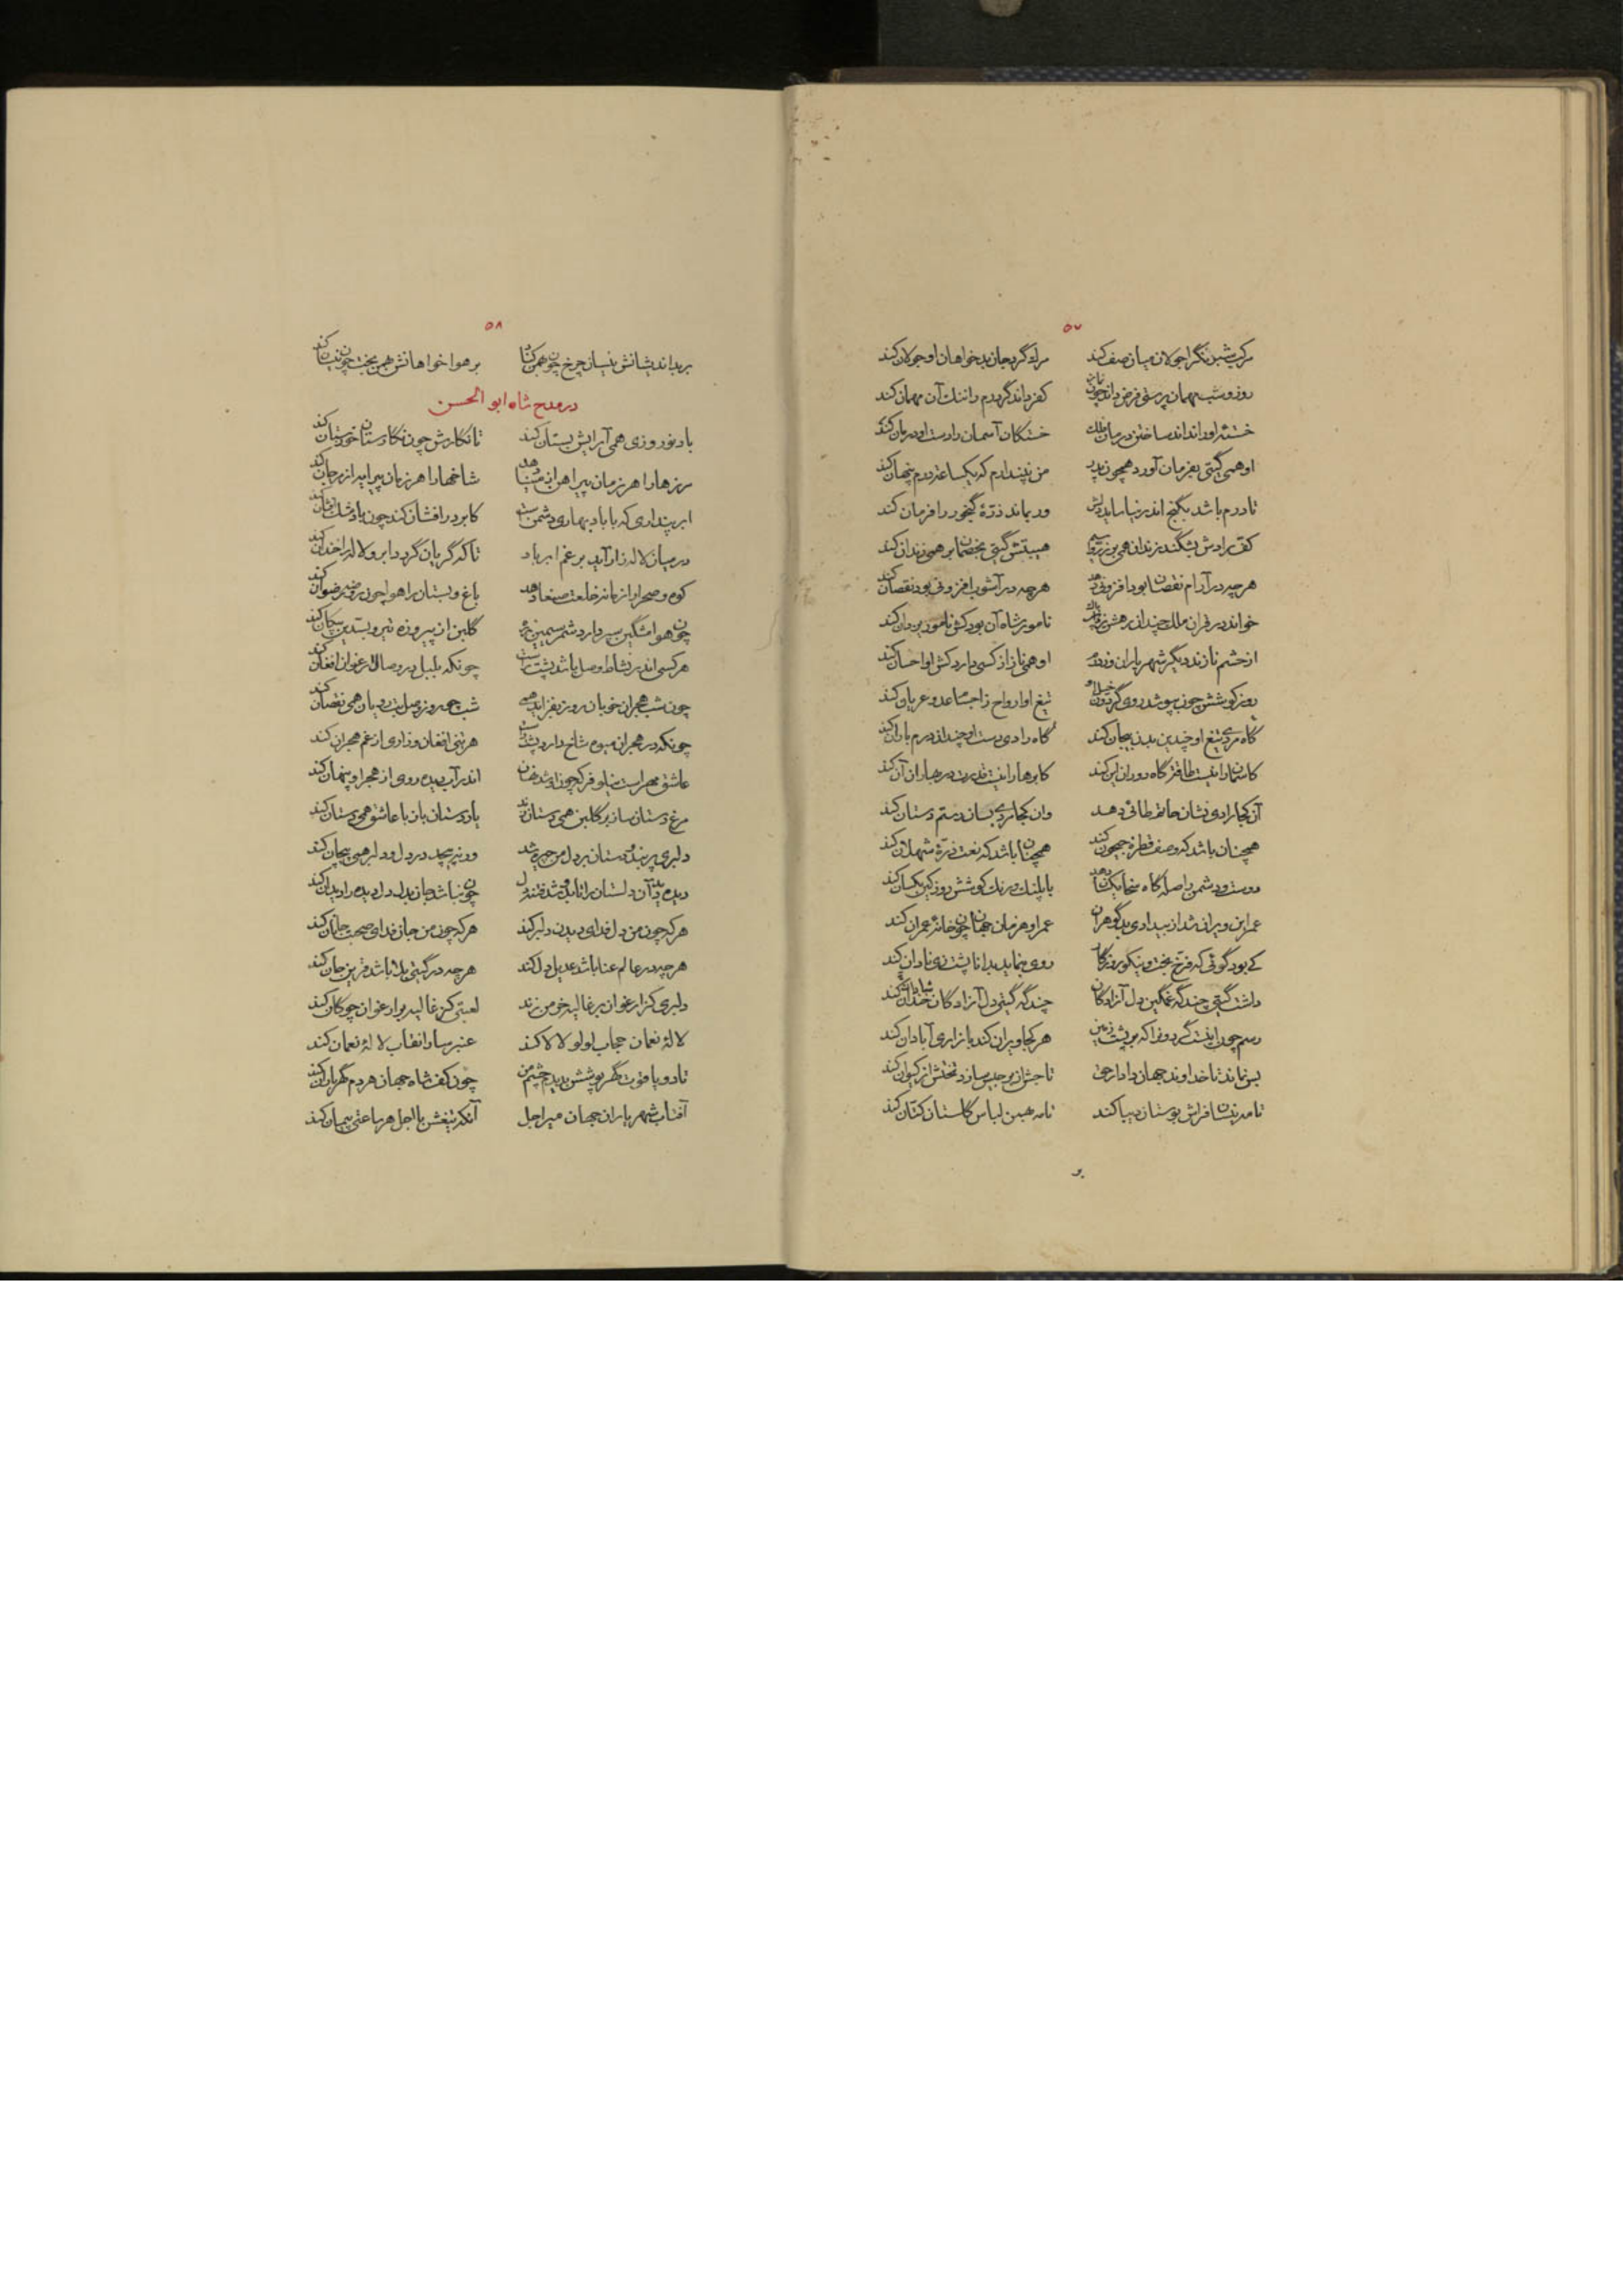 ۵۷
مرکب شبرنگ را جولان میان صف کند مرگ گرد جان بدخواهان او جولان کند
روز و شب مهمان پرستی فرض داند چون نماز کفر داند گر درم را ننگ آن مهمان کند
خسته او را نداند ساختن درمان فلک خستگان آسمان را دست او درمان کند
او همی گیتی بفرمان آورد همچون پدر من نپندارم که یکساعت درم پنهان کند
تا درم باشد بگنج اندر نیاساید دلش ور بماند ذره گنجور را فرمان کند
کف رادش بشکند زندان همی بر زر و سیم هیبتش گیتی بخصمان بر همی زندان کند
هرچه در آرام نقصان بود افزونی دهد هرچه در آشوب افزونی بود نقصان کند
خواند در قران ملک چندان نامور شاه آن بود کش نامور یزدان کند
از حشم نازند دیگر شهریاران وز درم او همی نازد از کسی دارد کش او احسان کند
روز کوشش چون بپوشد روی گردون تیغ او ارواح را ز اجسام اعدا عریان کند
گاه مردی تیغ او چندین بدن بیجان کند گاه رادی دست او چندان درم باران کند
کاسمان را نیست طاقت گاه دوران این کند کابرها را نیست قدرت در بهاران آن کند
آن کجا رادی نشان حاتم طائی دهد وان کجا مردی بسان رستم دستان کند
همچنان باشد که وصف قطره جیحون کند همچنان باشد که نعت ذره شهلان کند
دوست و دشمن را صله گاه سخا یکسان دهد با پلنگ و رنگ کوشش روز کین یکسان کند
عمر این ویران شد از بیدادی بدگوهران عمر او هر زمان جهان چون خانه عمران کند
کی بود گوئی که فرخ بخت و نیکو روزگار روی بنماید بدانا پشت زی نادان کند
داشت گیتی چند گه غمگین دل آزادگان چند گه گیتی دل آزادگان شادان کند
رسم چونان نیست گردون را که بر پشت زمین هر کجا ویران کند بازاری آبادان کند
بس نماند تا خداوند جهان دادار حی تاجش از برجیس سازد تختش از کیوان کند
تا مه نیسان فراش بوستان دیبا کند تا مه بهمن لباس گلستان کتان کند
بر
۵۸
بر بداندیشانش نیسان چرخ چون بهمن کناد بر هواخواهانش بهمن بخت چون نیسان کند
در مدح شاه ابو الحسن
باد نوروزی همی آرایش بستان کند تا نگارش چون نگارستان خوزستان کند
رزها را هر زمان پیراهن از مینا دهد شاخها را هر زمان پیرایه از مرجان کند
ابر پنداری که با باد بهاری دشمن است کابر در افشان کند چون باد مشک افشان کند
در میان لاله زار آید بر غم ابر باد تا که گریان گردد ابر و لاله را خندان کند
کوه و صحرا را زمانه خلعت صنعا دهد باغ و بستان را هوا چون روضه رضوان کند
چون هوا مشکین سپر دارد شمر سیمین زره گلبن از پیروزه تیر و بسدین پیکان کند
هر کسی اندر نشاط وصل باشد پشت راست چونکه بلبل در وصال ارغوان افغان کند
چون شب هجران خوبان روز بفزاید همی شب چو روز وصل بت رویان همی نقصان کند
چونکه در هجران میوه شاخ دارد پشت راست هر تنی افغان و زاری از غم هجران کند
عاشق مهر است نیلوفر که چون او شد نهان اندر آب دیده روی از هجر او پنهان کند
مرغ دستان ساز بر گلبن همی دستان زند یار دستان باز با عاشق همی دستان کند
دلبری پر بند و دستان بر دل من چیره شد ور نپیچد در دل و دلبر همی پیچان کند
دیده دید آن دلستان را تا بدو شد فتنه دل چون نباشد جان بدل دل دیده را دیدان کند
هر که چون من دل فدای دیدن دلبر کند هر که چون من جان فدای صحبت جانان کند
هر چه در عالم عنا باشد عدیل دل کند هر چه در گیتی بلا باشد قرین جان کند
دلبری کز ارغوان بر غالیه خرمن زند لعبتی کز غالیه بر ارغوان چوگان کند
لاله نعمان حجاب لولو لالا کند عنبر سارا نقاب لاله نعمان کند
تا دو یاقوت گهر پوشش بدید چشم من چون کف شاه جهان هر دم گهرباران کند
آفتاب شهریاران جهان میر اجل آنکه تیغش با اجل هر ساعتی پیمان کند